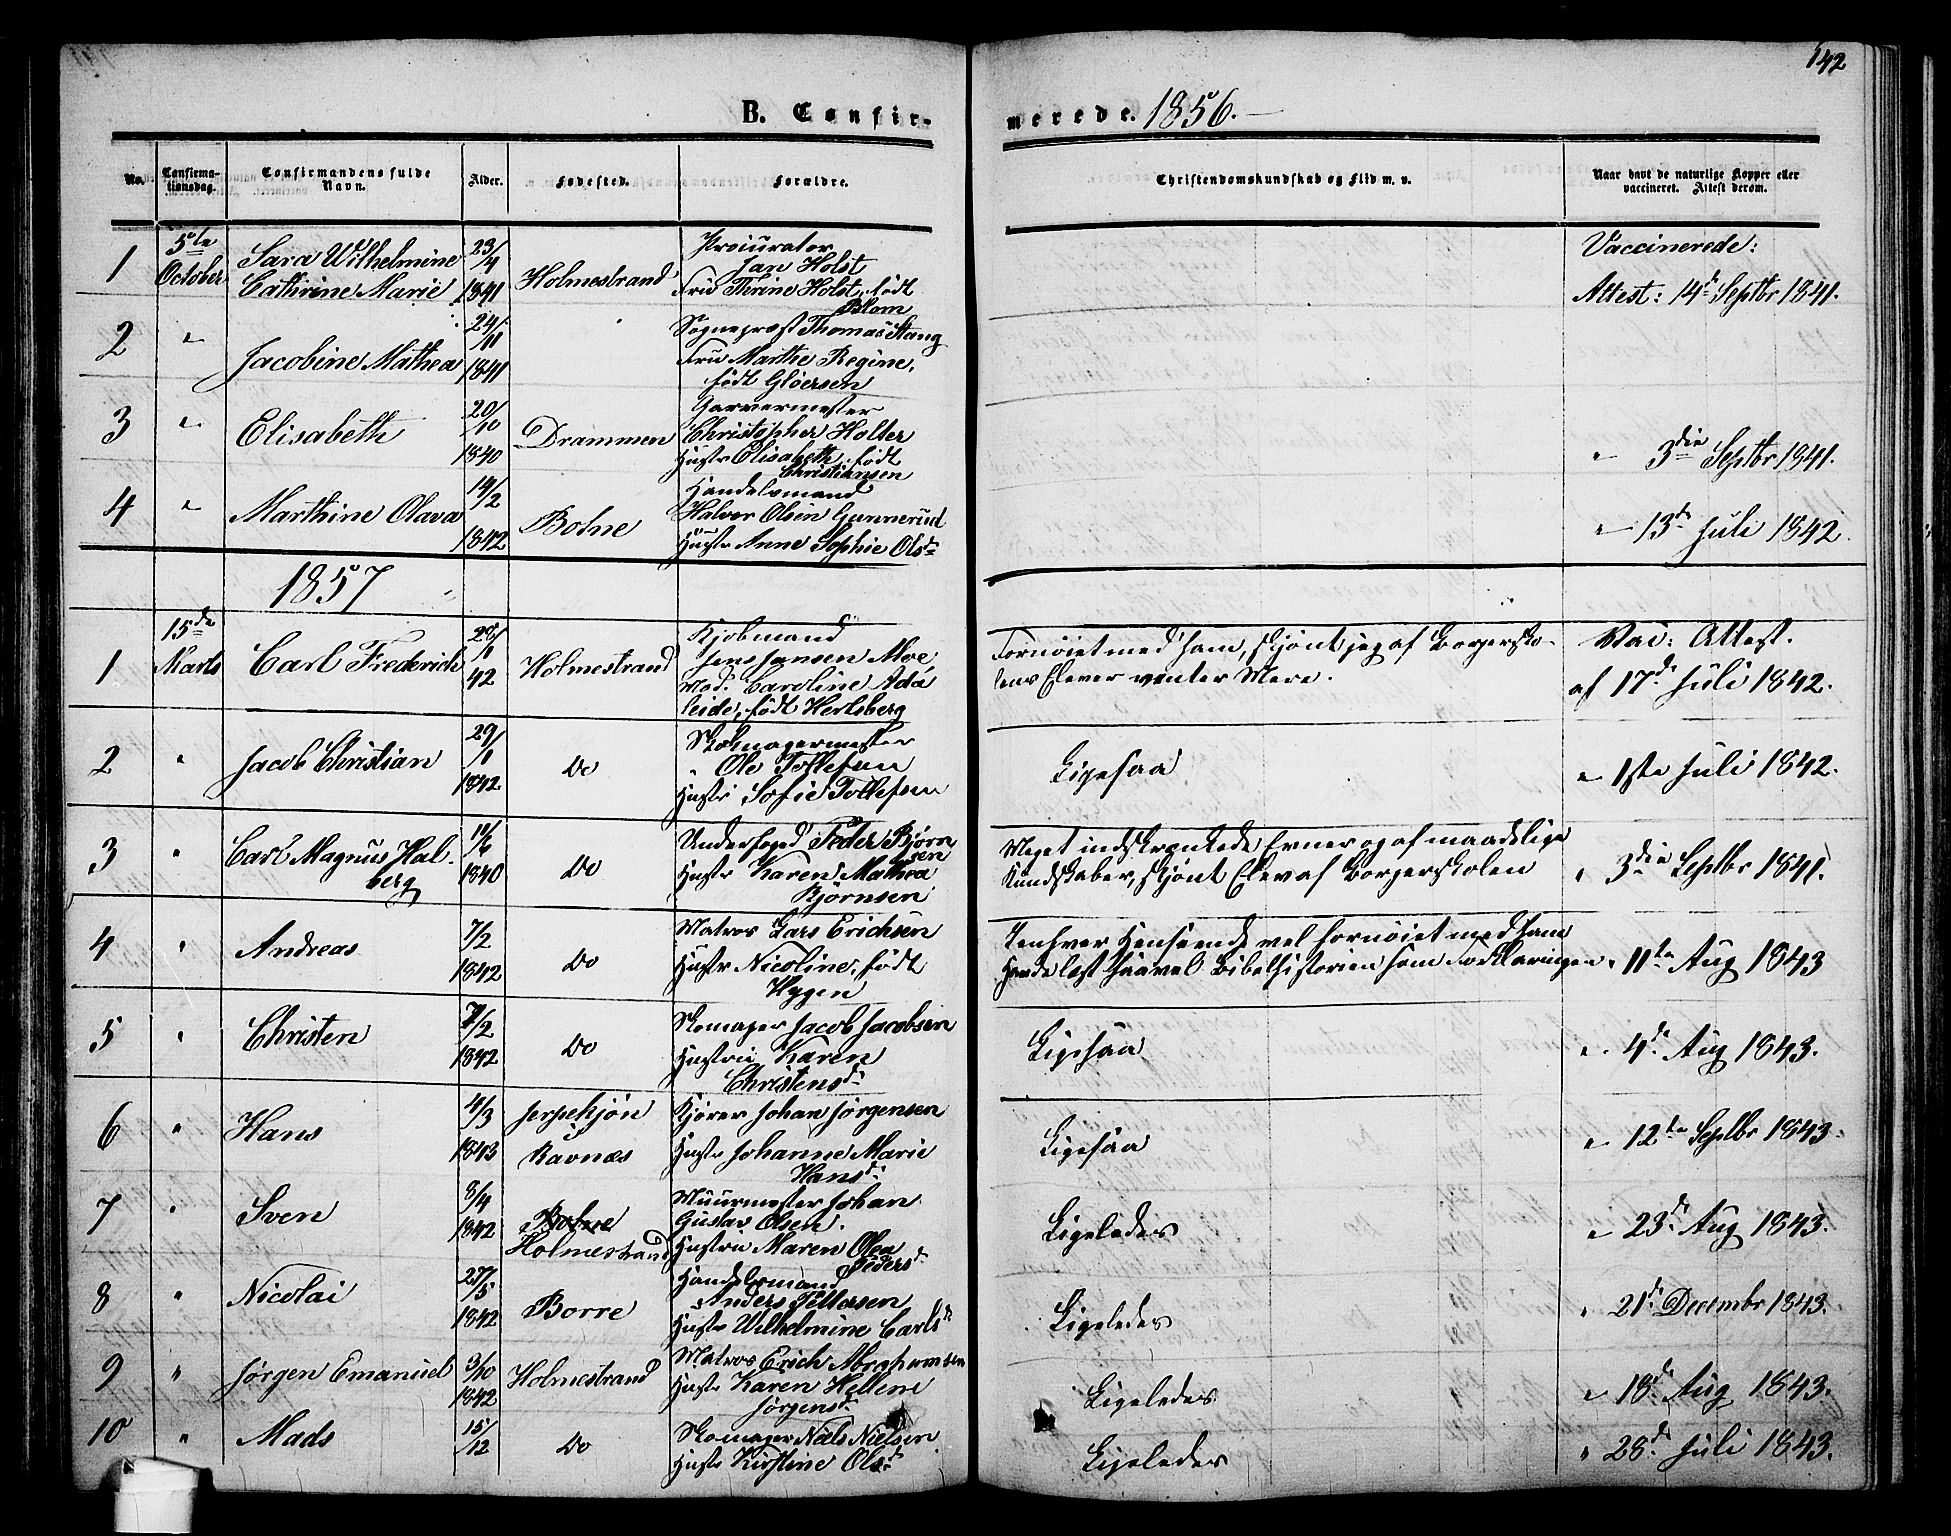 142
B. Confir-
merede. 1856.
No.
Confirma-
tionsdag.
Confirmandens fulde
Navn.
Alder.
Fødested.
Forældre.
Christendomskundskab og Flid m. v.
Naar havt de naturlige Kopper eller
vaccineret. Attest derom.
1
5te
October
Sara Wilhelmine
Cathrine Marie
23/4
1841
Holmestrand
Procurator
Jan Holst
Fru Thrine Holst, født
Blom
Vaccinerede:
Attest: 14d Septbr 1841.
2
"
Jacobine Mathea
24/11
1841
Sognepræst Thomas Stang
Fru Marthe Regine,
født Gløersen
3
"
Elisabeth
20/10
1840
Drammen
Garvermester
Christopher Holter
Hustr Elisabeth, født
Christiansen
" 3die Septbr 1841.
4
"
Marthine Olava
14/2
1842
Botne
Handelsmand
Halvor Olsen Gunnerud
Hustr Anne Sophie Olsd
" 13de Juli 1842.
1857
1
15de
Marts
Carl Frederich
28/1
42
Holmestrand
Kjøbmand
Jens Jansen Aloe,
Mod. Caroline Ada
leide, født Hertsberg
Fornøiet med ham, skjønt jeg af Borgersko-
lens Elever venter Mere.
Vac: Attest.
af 17d Juli 1842.
2
"
Jacob Christian
29/1
1842.
Do
Skomagermester
Ole Tollefsen
Hustr Sofie Tollefsen
Ligesaa
" 1ste Juli 1842.
3
"
Carl Magnus Hal-
berg
11/6
1840
Do
Underfoged Peder Bjørn
sen
Hustr Karen Mathea
Bjørnsen
Meget indskrænkede Evner og af maadelige
Kundskaber, skjønt Elev af Borgerskolen
" 3die Septbr 1841.
4
"
Andreas
7/2
1842
Do
Matros Lars Erichsen
Hustr Nicoline, født
Hygen
I enhver Henseende vel fornøiet med ham
Havde læst saavel Bibelhistorien som Forklaringen
" 11te Aug 1843
5
"
Christen
7/2
1842
Do
Skomager Jacob Jacobsen
Hustru Karen
Christensd
Ligesaa
" 4d Aug 1843.
6
"
Hans
4/3
1843
Ravnæs
Kjører Johan Jørgensen
Hustr Johanne Marie
Hansd
Ligesaa
" 12te Septbr 1843.
7
"
Sven
8/4
1842
Botne
Holmestrand
Muurmester Johan
Gustav Olsen.
Hustru Maren Olea
Pedersd
Ligeledes
" 23d Aug 1843.
8
"
Nicolai
27/5
1842
Borre
Handelsmand
Anders Pettersen
Hustr Wilhelmine Carlsd
Ligeledes
" 21d Decembr 1843.
9
"
Jørgen Emanuel
3/10
1842
Holmestrand
Matros Erich Abrahamsen
Hustr Karen Hellene
Jørgensd
Ligeledes
" 18d Aug 1843.
10
"
Mads
15/12
Do
Skomager Niels Nielsen
Hustr Kirstine Olsd
Ligeledes
" 28d Juli 1843.